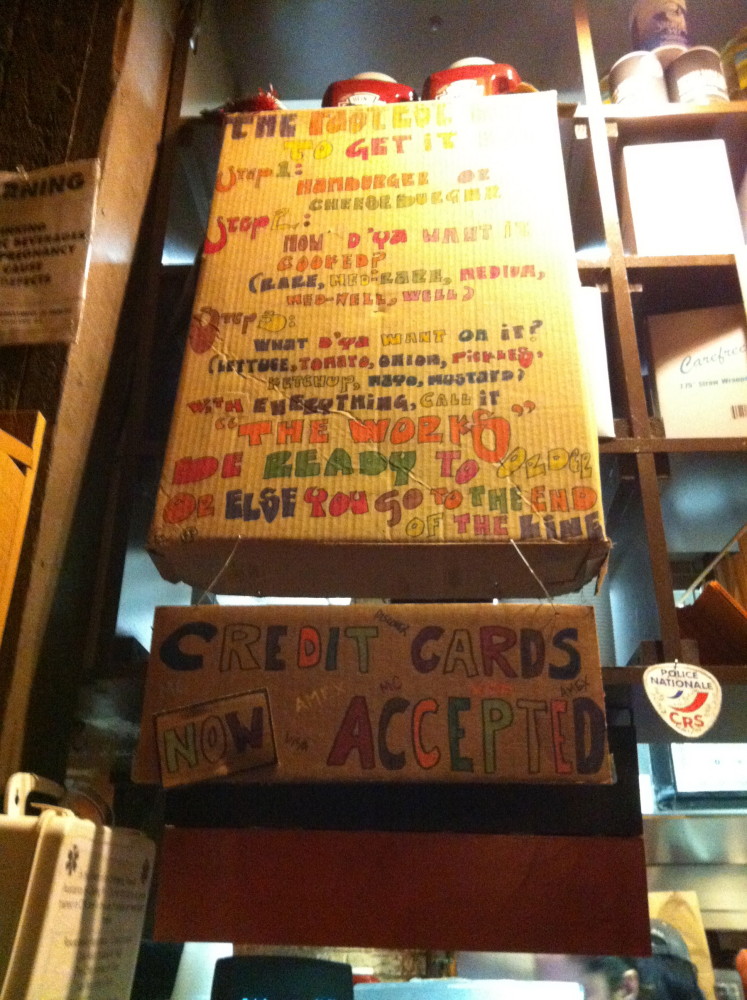 THE
TO GET IT
Step 1:
HAMBURGER OR
CHEESEBURGER
Step 2:
HOW D'YA WANT IT
COOKED?
(RARE, MED-RARE, MEDIUM,
MED-WELL, WELL)
Step 3:
WHAT D'YA WANT ON IT?
(LETTUCE, TOMATO, ONION, PICKLES,
KETCHUP, MAYO, MUSTARD)
WITH EVERYTHING, CALL it
"THE WORKS"
BE READY TO ORDER
OR ELSE YOU GO TO THE END
OF THE LINE
CREDIT CARDS
NOW ACCEPTED
VISA
AMEX
RNING
BEVERAGES
PREGNANCY
CAUSE
Carefree
POLICE
NATIONALE
CRS